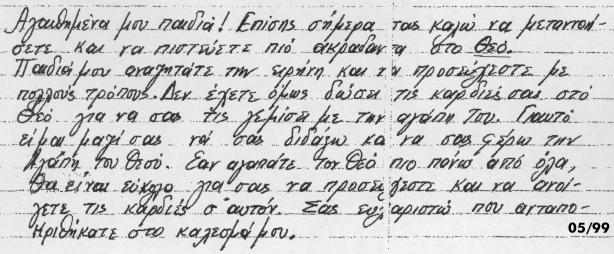 Αγαπημένα μου παιδιά! Επίσης σήμερα σας καλώ να μετανοή-
σετε και να πιστεύετε πιό ακράδαντα στο Θεό.
Παιδιά μου αναζητάτε την ειρήνη και να προσεύχεστε με
πολλούς τρόπους. Δεν έχετε όμως δώσει τις καρδιές σας στό
Θεό για να σας τις γεμίσει με την αγάπη του. Γιαυτό
είμαι μαζί σας νά σας διδάξω και να σας φέρω την
αγάπη του Θεού. Εαν αγαπάτε τον Θεό πιο πάνω από όλα,
θα είναι εύκολο για σας να προσεύχεστε και να ανοί-
γετε τις καρδιές σ'αυτόν. Σας ευχαριστώ που ανταπο-
κριθήκατε στο κάλεσμά μου.
05/99